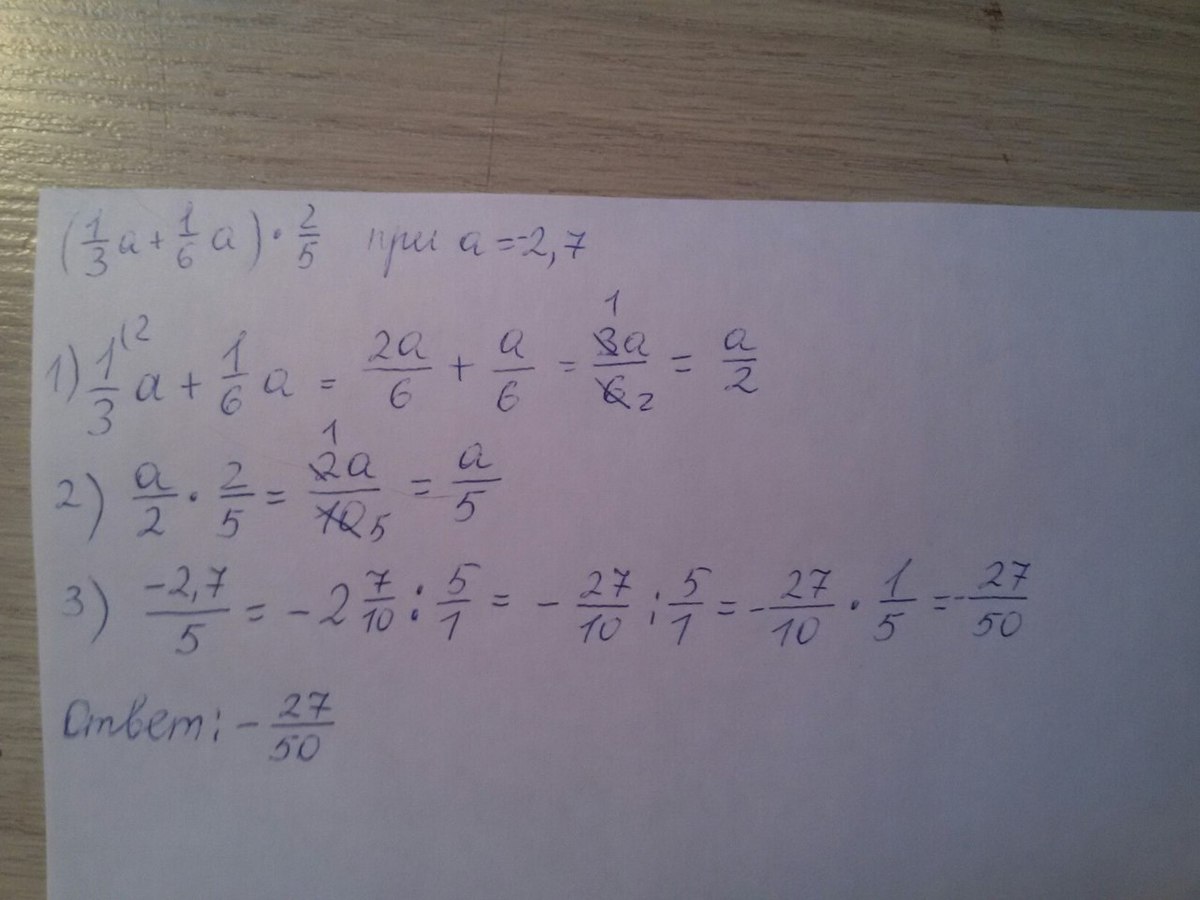 (1/3 a + 1/6 a) · 2/5 при a = -2,7
1) 1/3 (2 a + 1/6 a = 2a/6 + a/6 = 3a/6 1 2 = a/2
2) a/2 · 2/5 = 2a/10 1 5 = a/5
3) -2,7/5 = - 2 7/10 : 5/1 = - 27/10 : 5/1 = - 27/10 · 1/5 = - 27/50
Ответ: - 27/50